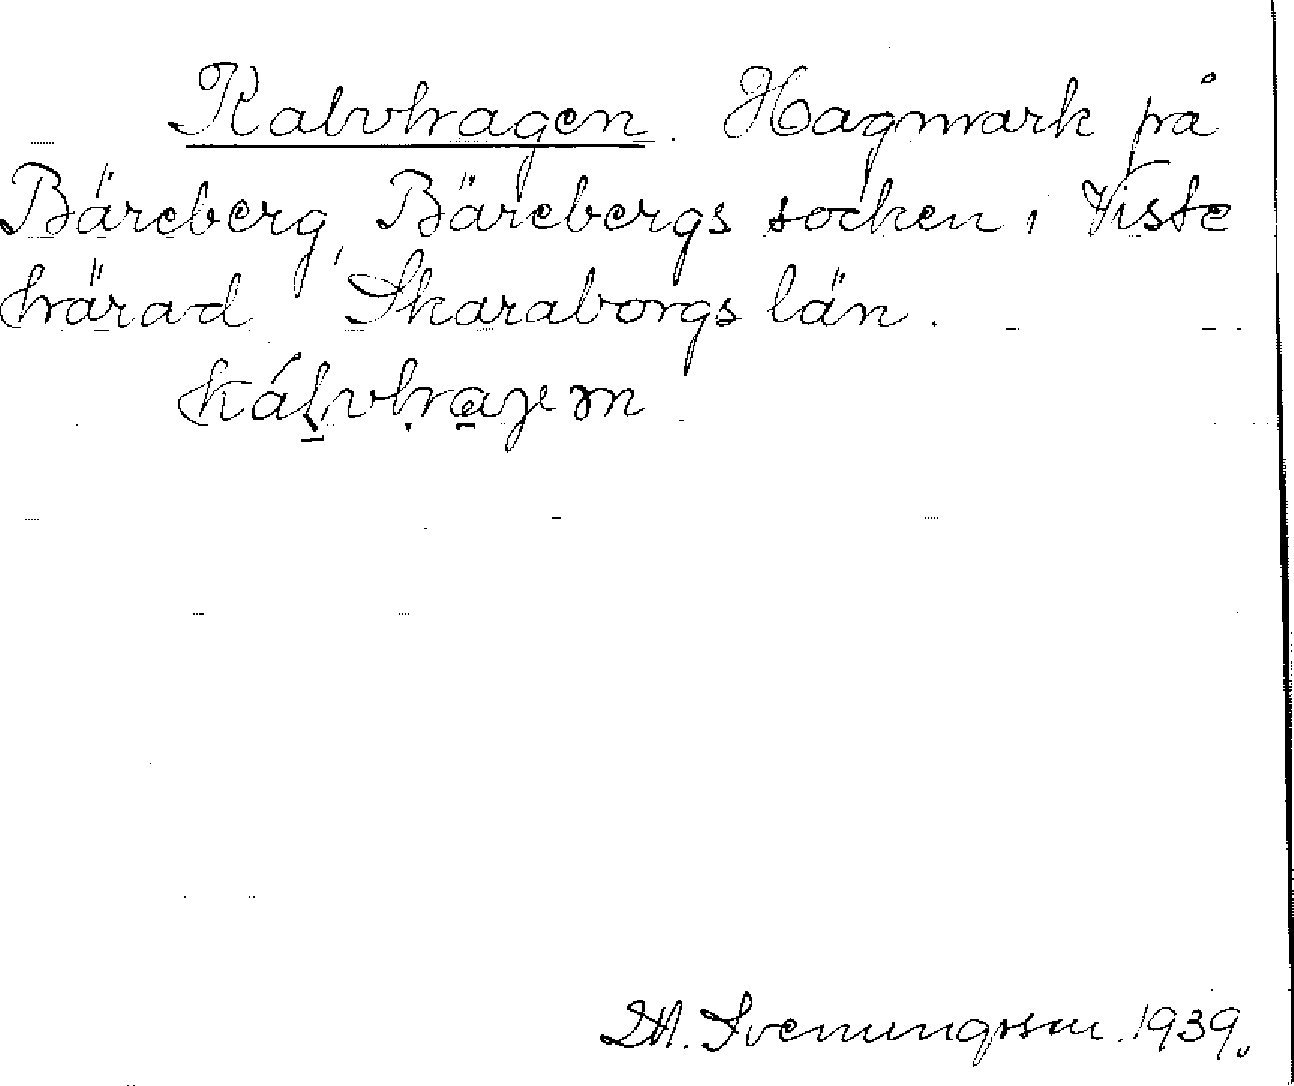 Kalvhagen. Hagmark på
Bäreberg, Bärebergs socken, Viste
härad, Skaraborgs län.
kálvhagen
M. Svenungsson. 1939.